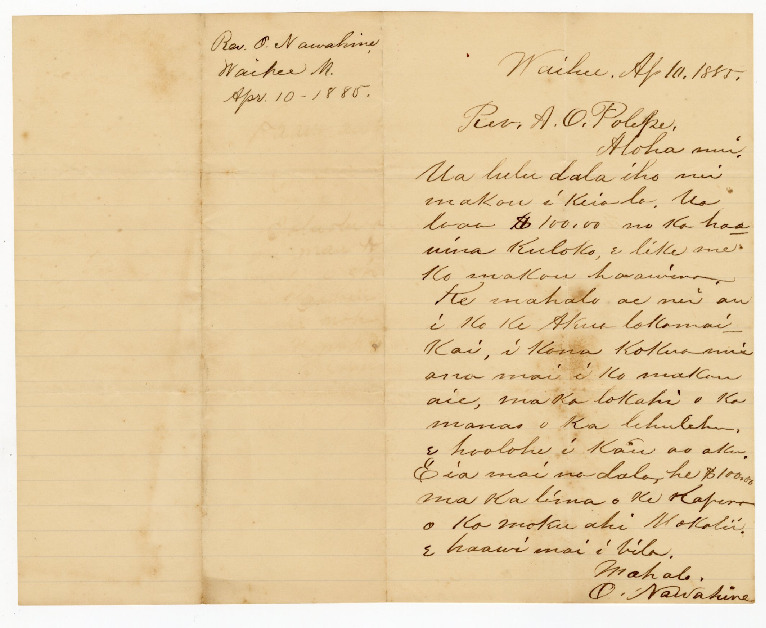 Rev. O. Nawahine
Waihee M.
Apr. 10 - 1885.
Waihee. Ap 10. 1885.
Rev. A. O. Polepe.
Aloha nui.
Ua hulu dala iho nei
makou i keia la. Ua
loaa $100.00 no ka haa
wina Kuloko, e like me
ko makou haawina.
Ke mahalo ae nei au
i ko ke Akua lokomai
kai, i kona kokua mai
ana mai i ko makou
aie, ma ka lokahi o ka
manao o ka lehulehu.
e hoolohe i kau ao aku.
Eia mai na dala, he $100.00
ma ka lima o ke Kapena
o ka moku ahi Mokolii.
e haawi mai i bila.
Mahalo.
O. Nawahine